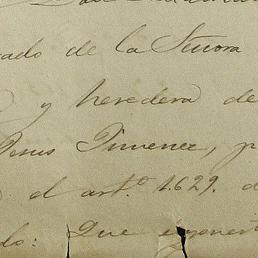 ado de la Señora
y heredera de
Jesus Jimenez, p
el art.º 1.629. d
do: Que